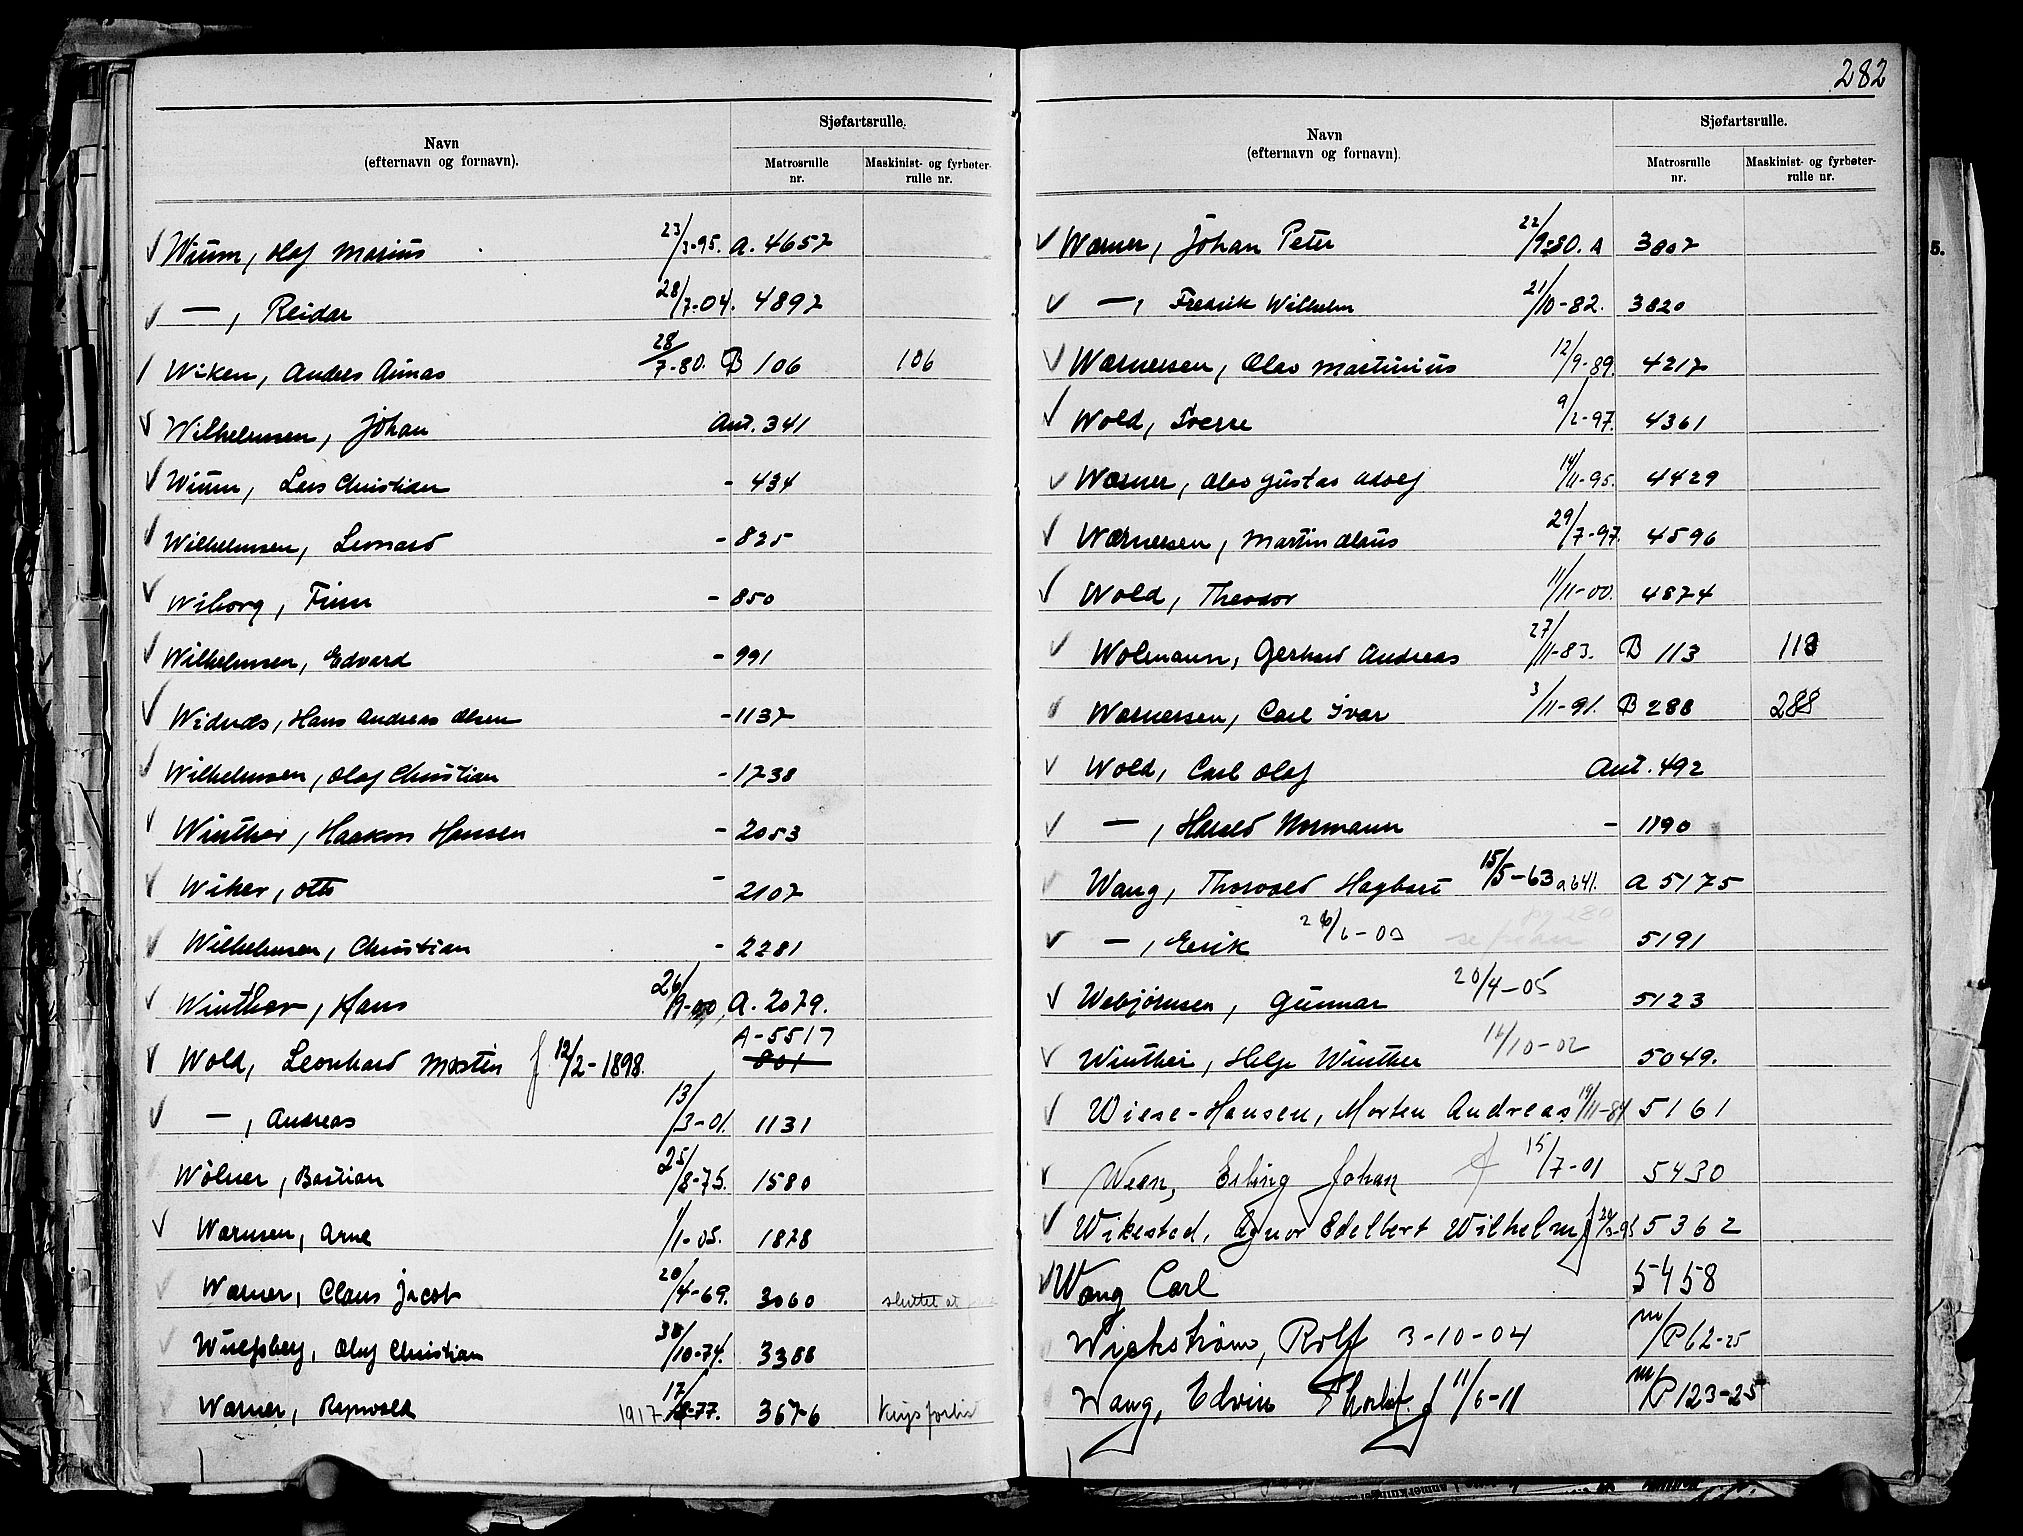 282
Navn
(efternavn og fornavn).
Sjøfartsrulle.
Matrosrulle nr.
Maskinist- og fyrbøter-rulle nr.
Wium, Olaf Marius 23/3-95. A. 4657
— , Reidar 28/7-04. 4897
Wiken, Andres Asmas 28/7-80. B 106 106
Wilhelmsen, Johan Ant. 341
Wium, Lars Christian - 434
Wilhelmsen, Leonard - 825
Wiborg, Finn - 850
Wilhelmsen, Edvard - 991
Widnes, Hans Andreas Olsen - 1137
Wilhelmsen, Olaf Christian - 1738
Winther, Haakon Hansen - 2053
Wiker, Otto - 2107
Wilhelmsen, Christian - 2281
Winther, Hans 26/9-00, A. 2079.
Wold, Leonhard Martin f 12/2-1898. A-5517 801
— , Andreas 13/3-01. 1131
Wølner, Bastian 25/8-75. 1580
Warnsen, Arne 1/1-05. 1878
Warner, Claus Jacob 20/4-69. 3060 sluttet at
Wulfsberg, Olaf Christian 30/10-74. 3388
Wærner, Ragnvald 1917 17/8-77. 3676 Krigsforlist
Navn
(efternavn og fornavn).
Sjøfartsrulle.
Matrosrulle nr.
Maskinist- og fyrbøter-rulle nr.
Wærner, Johan Peter 22/9-80. A 3807
— , Fredrik Wilhelm 21/10-82. 3820
Wærnersen, Olav Martinius 12/9-89. 4217
Wold, Sverre 9/2-97. 4361
Wærner, Olav Gustav Adolf 14/11-95. 4429
Wærnersen, Martin Olaus 29/7-97. 4596
Wold, Theodor 11/11-00. 4874
Wolmann, Gerhard Andreas 27/11-83. B 113 113
Wærnersen, Carl Ivar 3/11-91. B 288 288
Wold, Carl Olaf Ant. 492
— , Harald Normann - 1190
Wang, Thorvald Hagbart 15/5-63 a 641. A 5175
— , Erik 26/6-03 se foran pg 280 5191
Webjørnsen, Gunnar 20/4-05 5123
Winther, Helge Winther 16/10-02 5049.
Wiese-Hansen, Morten Andreas 19/11-81 5161
Ween, Erling Johan f 15/7-01 5430
Wikestad, Agnor Edelbert Wilhelm f 5362
Wang Carl 5458
Wickstrøm, Rolf 3-10-04 m/P62-25
Wang, Edvin Thorleif f 11/6-11 m/P123-25
5.